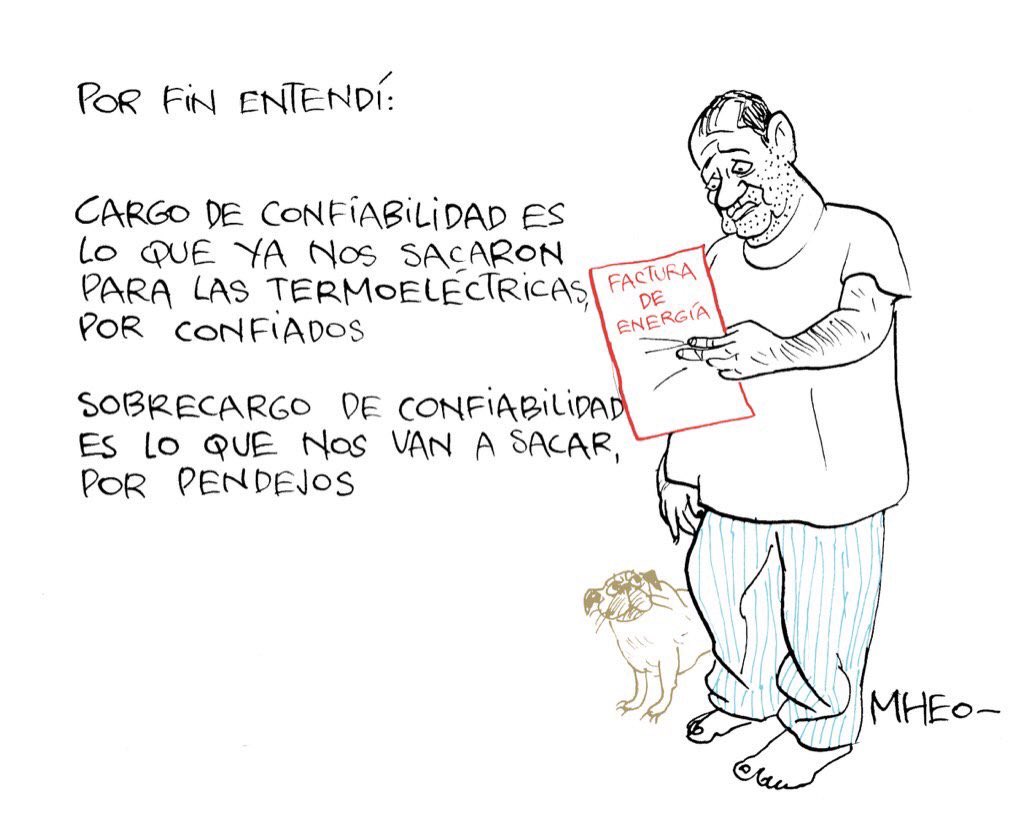 POR FIN ENTENDÍ:
CARGO DE CONFIABILIDAD ES
LO QUE YA NOS SACARON
PARA LAS TERMOELÉCTRICAS,
POR CONFIADOS
SOBRECARGO DE CONFIABILIDAD
ES LO QUE NOS VAN A SACAR,
POR PENDEJOS
FACTURA
DE
ENERGÍA
MHEO-